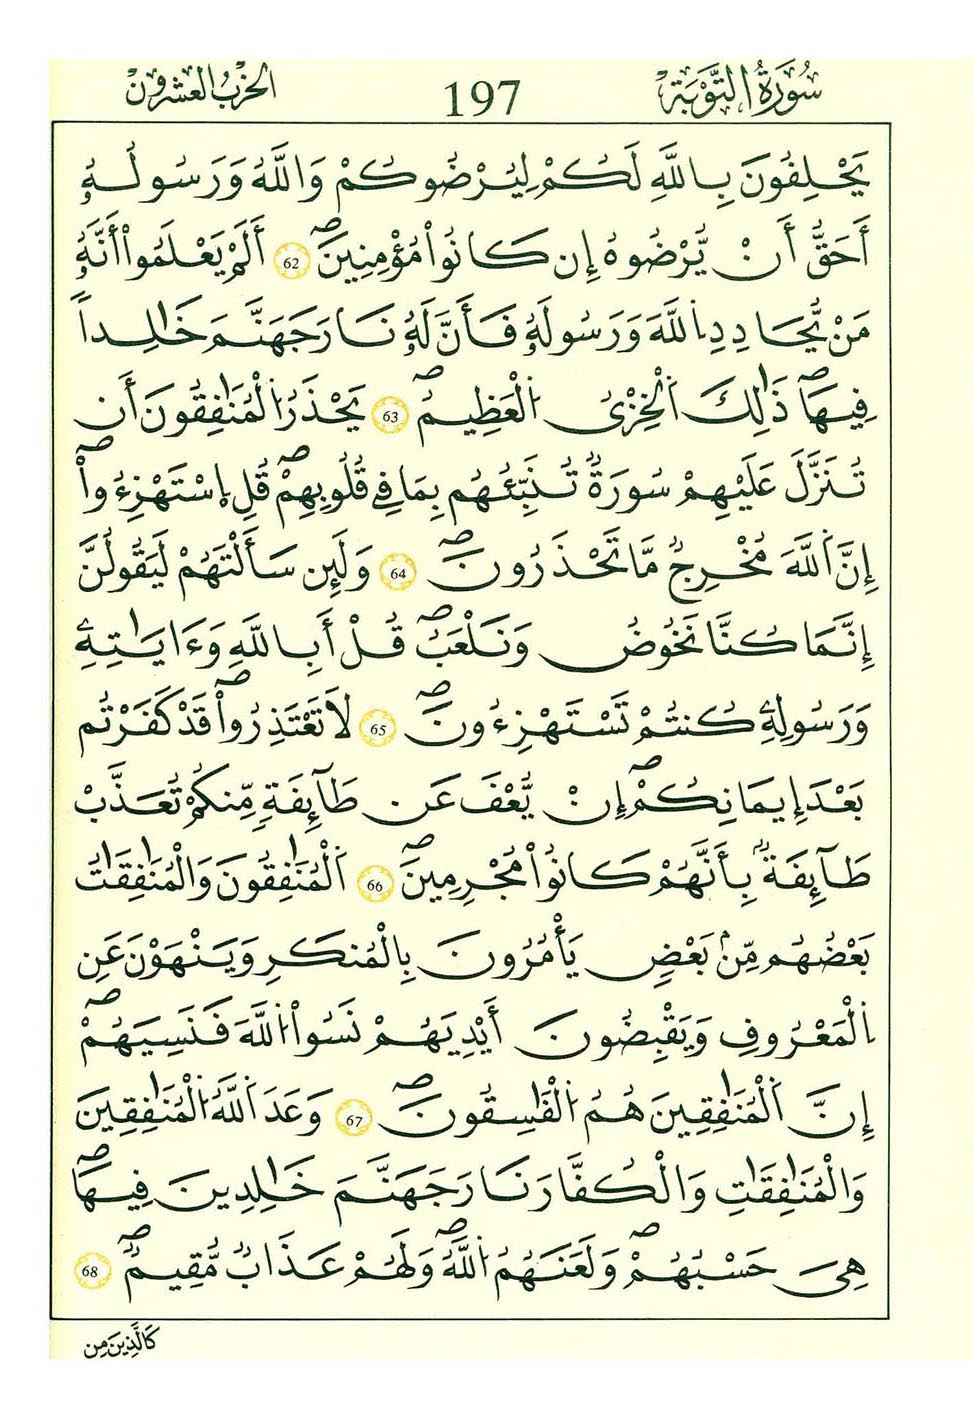 سُورَةُ التَّوْبَةِ 197 الحِزْبُ العِشْرُونَ
يَحْلِفُونَ بِاللَّهِ لَكُمْ لِيُرْضُوكُمْ وَاللَّهُ وَرَسُولُهُۥ
أَحَقُّ أَنْ يُّرْضُوهُ إِن كَانُواْ مُؤْمِنِينَۖ 62 أَلَمْ يَعْلَمُواْ أَنَّهُۥ
مَنْ يُّحَادِدِ اِللَّهَ وَرَسُولَهُۥ فَأَنَّ لَهُۥ نَارَ جَهَنَّمَ خَٰلِداً
فِيهَاۖ ذَٰلِكَ اَلْخِزْىُ اُلْعَظِيمُۖ 63 يَحْذَرُ اُلْمُنَٰفِقُونَ أَن
تُنَزَّلَ عَلَيْهِمْ سُورَةٞ تُنَبِّئُهُم بِمَا فِي قُلُوبِهِمْۖ قُلِ اِسْتَهْزِءُوٓاْۖ
إِنَّ اَللَّهَ مُخْرِجٞ مَّا تَحْذَرُونَۖ 64 وَلَئِن سَأَلْتَهُمْ لَيَقُولُنَّ
إِنَّمَا كُنَّا نَخُوضُ وَنَلْعَبُۖ قُلْ أَبِاللَّهِ وَءَايَٰتِهِۦ
وَرَسُولِهِۦ كُنتُمْ تَسْتَهْزِءُونَۖ 65 لَا تَعْتَذِرُواْۖ قَدْ كَفَرْتُم
بَعْدَ إِيمَانِكُمْۖ إِنْ يُّعْفَ عَن طَآئِفَةٖ مِّنكُمْ تُعَذَّبْ
طَآئِفَةُۢ بِأَنَّهُمْ كَانُواْ مُجْرِمِينَۖ 66 اَلْمُنَٰفِقُونَ وَالْمُنَٰفِقَٰتُ
بَعْضُهُم مِّنۢ بَعْضٖ يَأْمُرُونَ بِالْمُنكَرِ وَيَنْهَوْنَ عَنِ
اِلْمَعْرُوفِ وَيَقْبِضُونَ أَيْدِيَهُمْ نَسُواْ اُللَّهَ فَنَسِيَهُمْۖ
إِنَّ اَلْمُنَٰفِقِينَ هُمُ اُلْفَٰسِقُونَۖ 67 وَعَدَ اَللَّهُ اُلْمُنَٰفِقِينَ
وَالْمُنَٰفِقَٰتِ وَالْكُفَّارَ نَارَ جَهَنَّمَ خَٰلِدِينَ فِيهَاۖ
هِيَ حَسْبُهُمْۖ وَلَعَنَهُمُ اُللَّهُۖ وَلَهُمْ عَذَابٞ مُّقِيمٞۖ 68
كَالَّذِينَ مِن